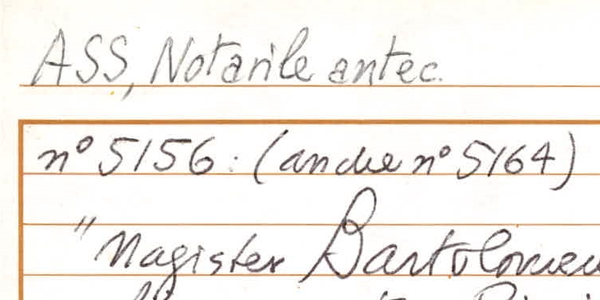 ASS, Notarile antec.
n° 5156: (anche n° 5164)
"Magister Bartolomeu